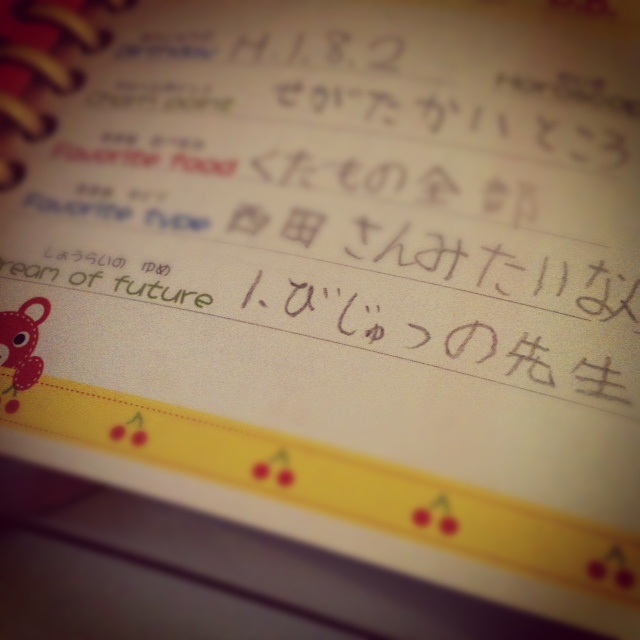 Birthday H.1.8.2
Charm point せがたかいところ
Favorite food くだもの全部
Favorite type 西田さんみたいな人
しょうらいの ゆめ
Dream of future 1.びじゅつの先生